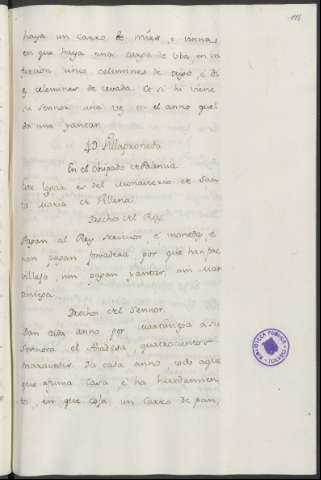 115
haya un carro de mies, e vinna
en que haya una carga de uba, en ca
fuerzan unos celemines de trigo, e de
celemines de cevada. E si hi viene
la Sennor una vez en el anno quel
dan una yantar.
49 Villaproneda
En el Obispado de Palencia
Este logar es del Monasterio de San
ta Maria de Villena.
Derechos del Rey
Pagan al Rey servicios, e moneda, e
non pagan fonsadera por que han pre
villejo, nin pagan yantar, nin Mar
tiniega.
Derechos del Sennor.
Dan cada anno por martiniega a su
Sennora el Abadesa, quatrocientos
maravedis. Da cada anno todo aquel
que afuma casa, e ha heredamien
to, en que coja un carro de pan,
BIBLIOTECA PUBLICA
TOLEDO